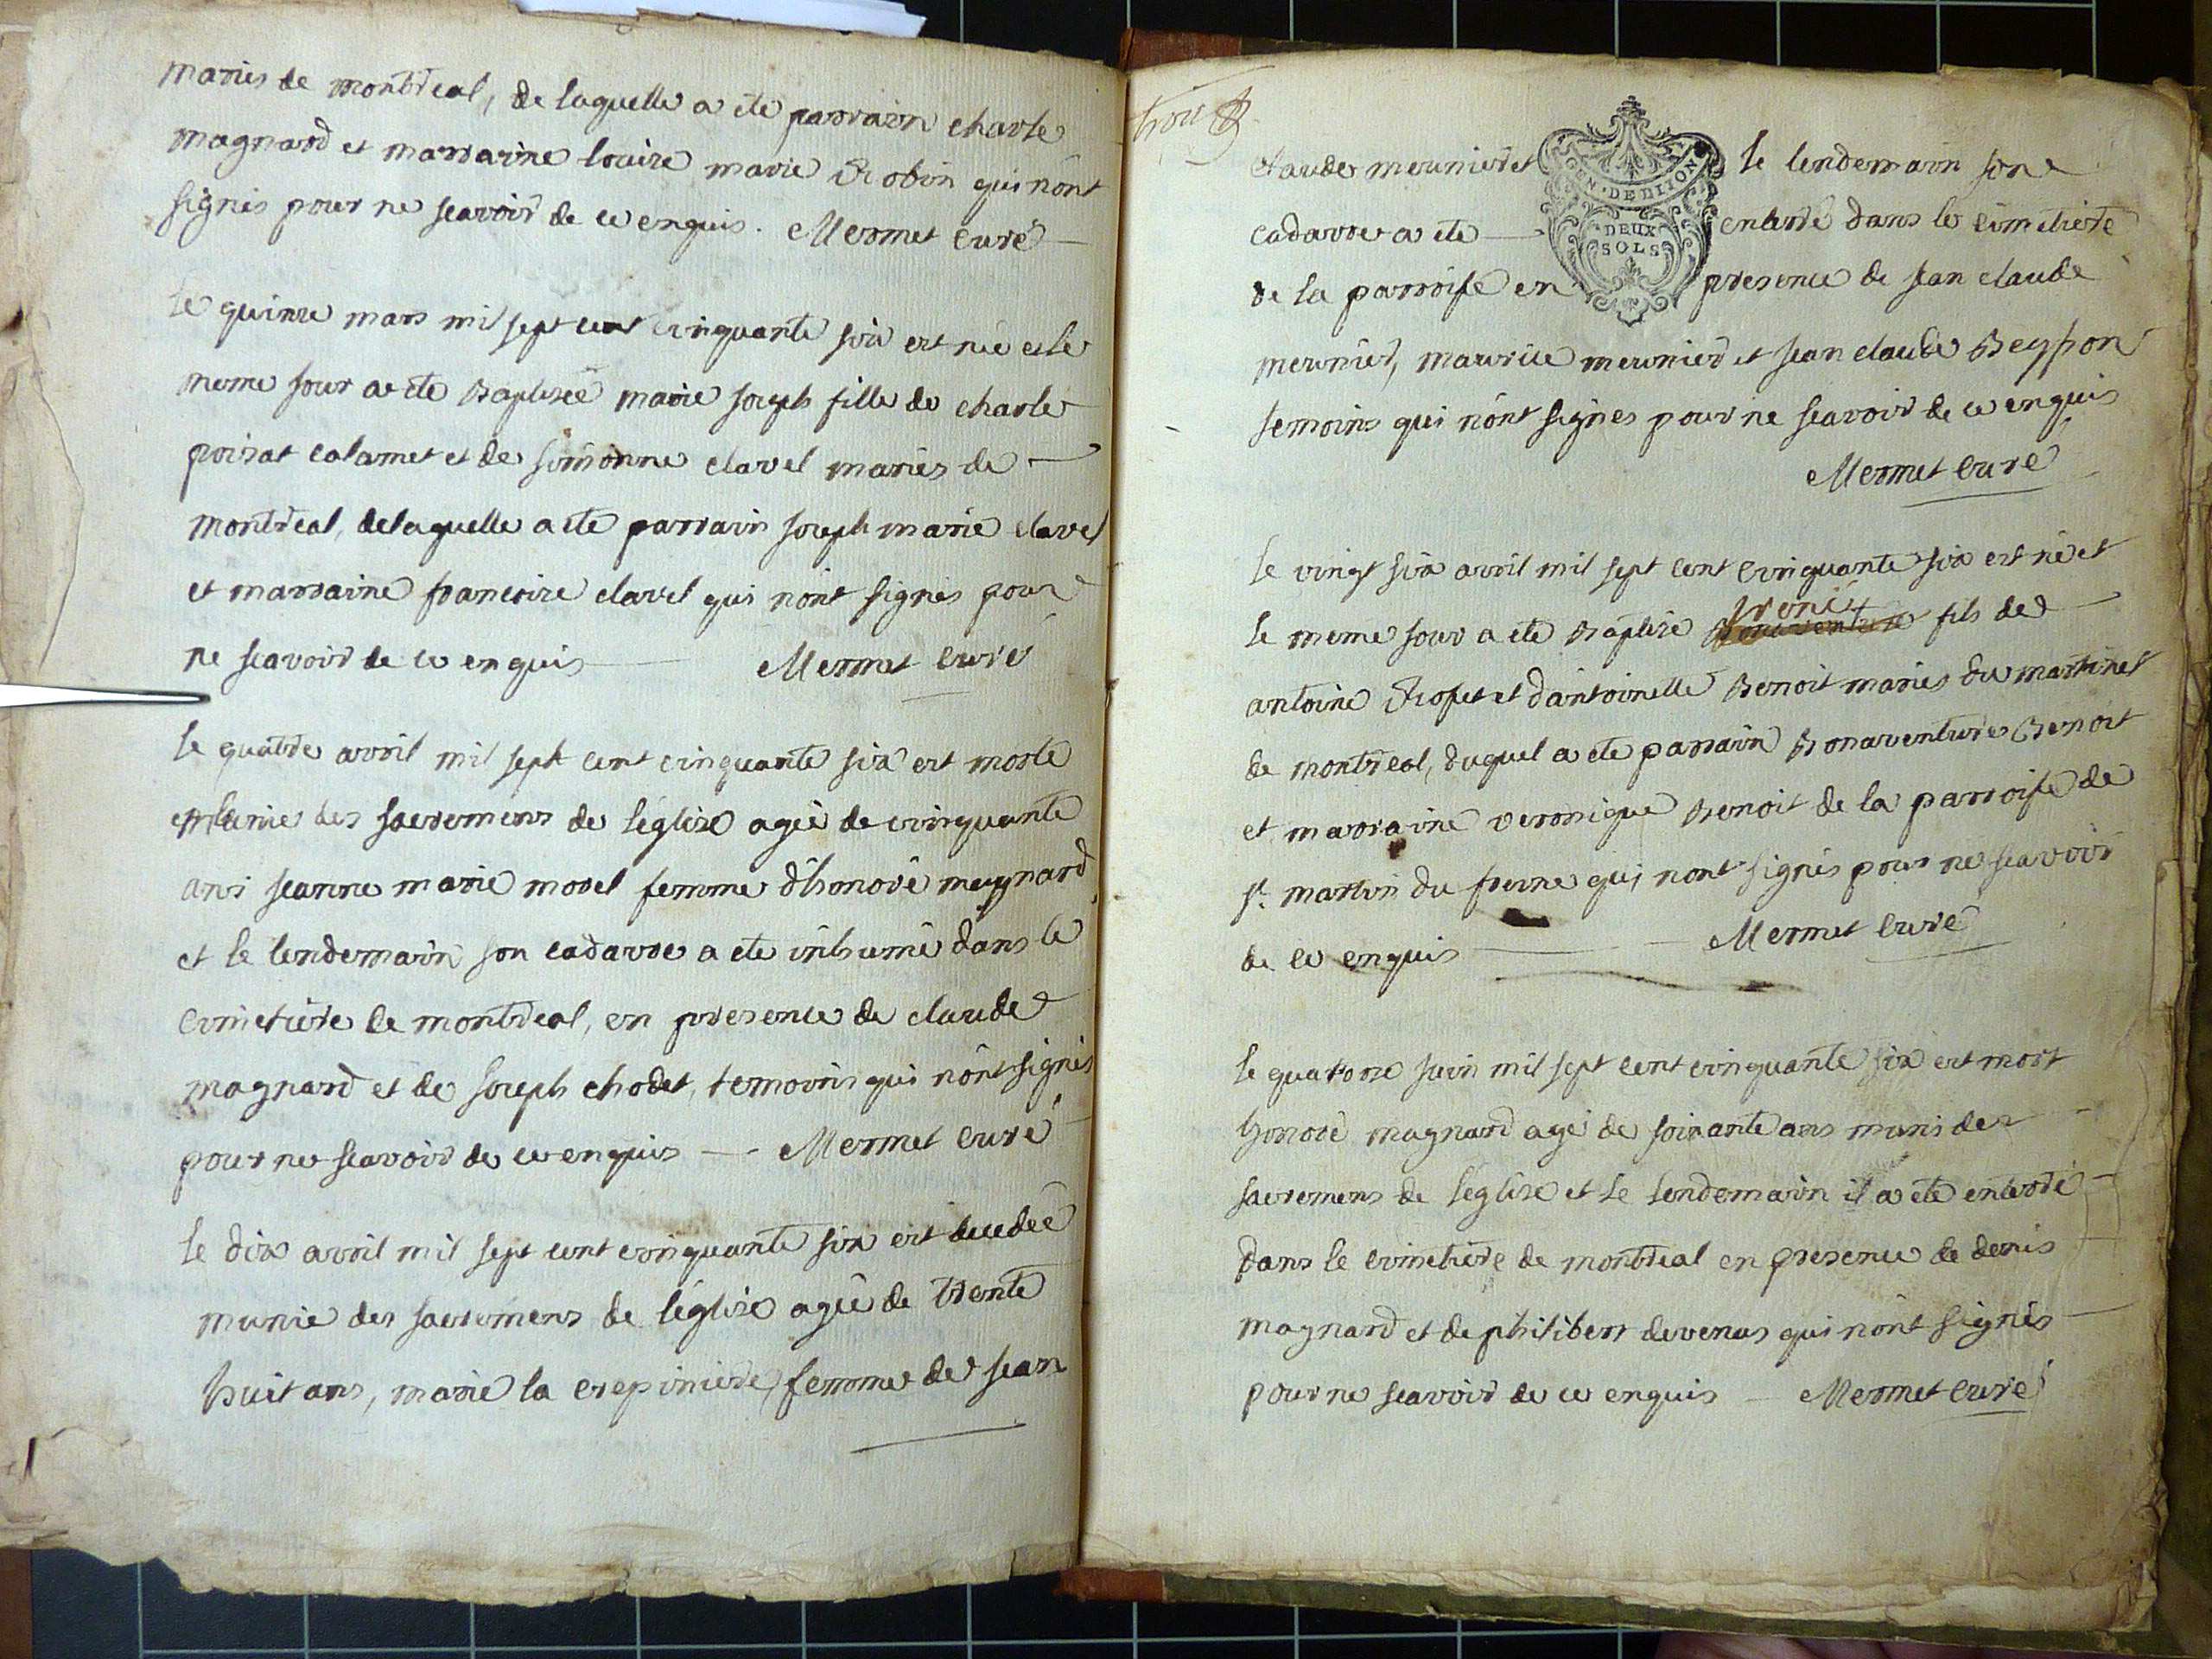 maries de montreal, de laquelle a ete parrain charle
magnard et marraine louise marie Robin qui nônt
signés pour ne scavoir de ce enquis. Mermet curé
le quinze mars mil sept cent cinquante six est née et le
meme jour a ete Baptisée marie joseph fille de charle
poisat calamet et de simônne clavel mariés de
montreal, de laquelle a ete parrain joseph marie clavel
et marraine francoise clavel qui nônt signés pour
ne scavoir de ce enquis Mermet curé
le quatre avril mil sept cent cinquante six est morte
munie des sacremens de l'église agée de cinquante
ans jeanne marie morel femme d'honoré magnard
et le lendemain son cadavre a ete inhumé dans le
cimetiere de montreal, en presence de claude
magnard et de joseph chodet, temoins qui nônt signés
pour ne scavoir de ce enquis — Mermet curé
le dix avril mil sept cent cinquante six est decedée
munie des sacremens de l'église agée de trente
huit ans, marie la crepiniere, femme de jean
claude meunier et le lendemain son
GEN. DE DIJON
DEUX
SOLS
cadavre a ete enterré dans le cimetiere
de la parroisse en presence de jean claude
meunier, maurice meunier et jean claude Beysson
temoins qui nônt signés pour ne scavoir de ce enquis
Mermet curé
le vingt six avril mil sept cent cinquante six est né et
le meme jour a ete Baptisé fils de
antoine Rosset et d'antoinette Benoit mariés du martinet
de montreal, duquel a ete parrain Bonaventure Benoit
et marraine veronique Benoit de la parroisse de
st. martin du fresne qui nont signés pour ne scavoir
de ce enquis Mermet curé
le quatorze juin mil sept cent cinquante six est mort
honoré magnard agé de soixante ans munis des
sacremens de l'église et le lendemain il a ete enterré
dans le cimetiere de montreal en presence de denis
magnard et de philibert devenas qui nônt signés
pour ne scavoir de ce enquis — Mermet curé